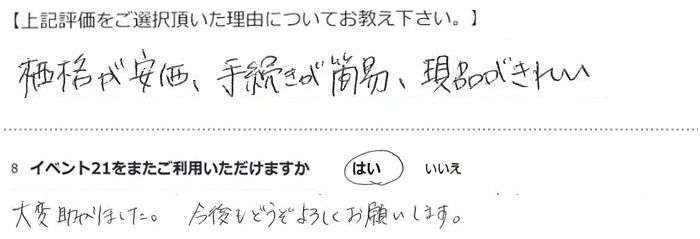 【上記評価をご選択頂いた理由についてお教え下さい。】
価格が安価、手続きが簡易、現品がきれい
8 イベント21をまたご利用いただけますか はい いいえ
大変助かりました。 今後もどうぞよろしくお願いします。